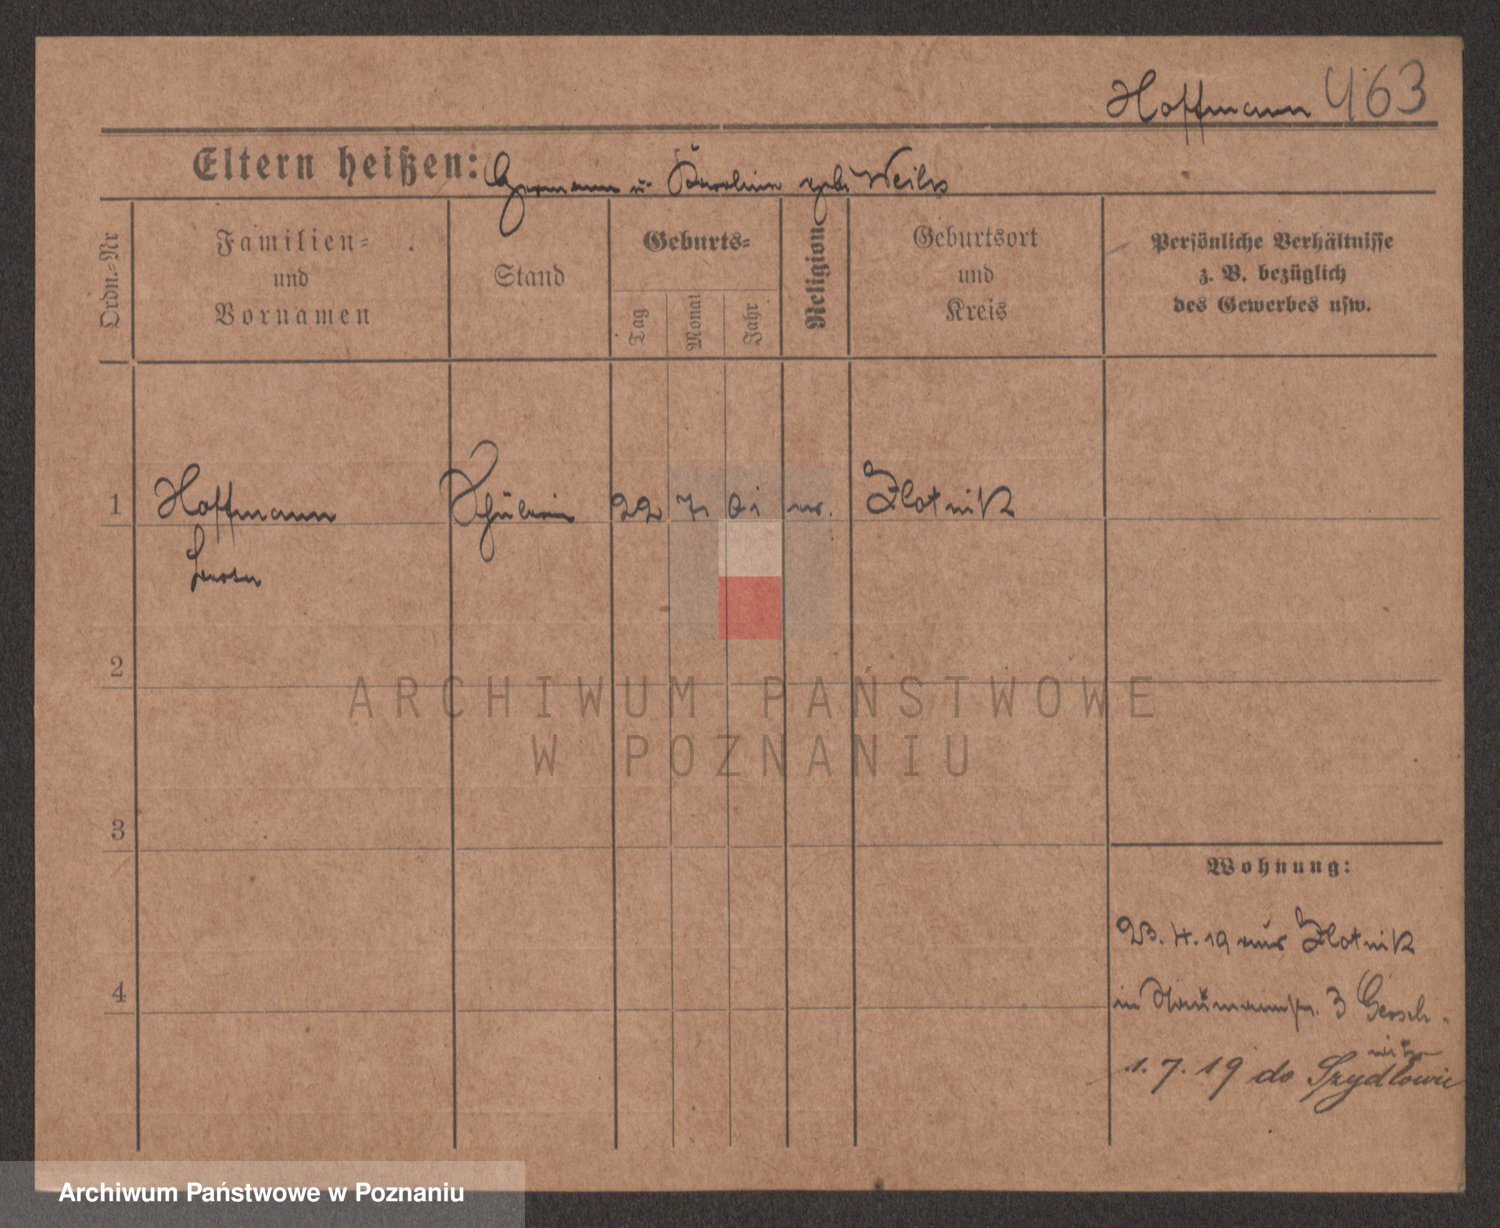 Hoffmann 463
Eltern heißen: Hermann u. Karoline geb. Weiß
Ordn.-Nr
Familien-
und
Vornamen
Stand
Geburts-
Tag
Monat
Jahr
Religion
Geburtsort
und
Kreis
Persönliche Verhältnisse
z. B. bezüglich
des Gewerbes usw.
1
Hoffmann Schülerin 22 7 01 Zlotnik
2
3
4
Wohnung:
23. 4. 19 aus Zlotnik
in Naumannstr. 3
1. 7. 19 do Szydłowic
ARCHIWUM PAŃSTWOWE
W POZNANIU
Archiwum Państwowe w Poznaniu